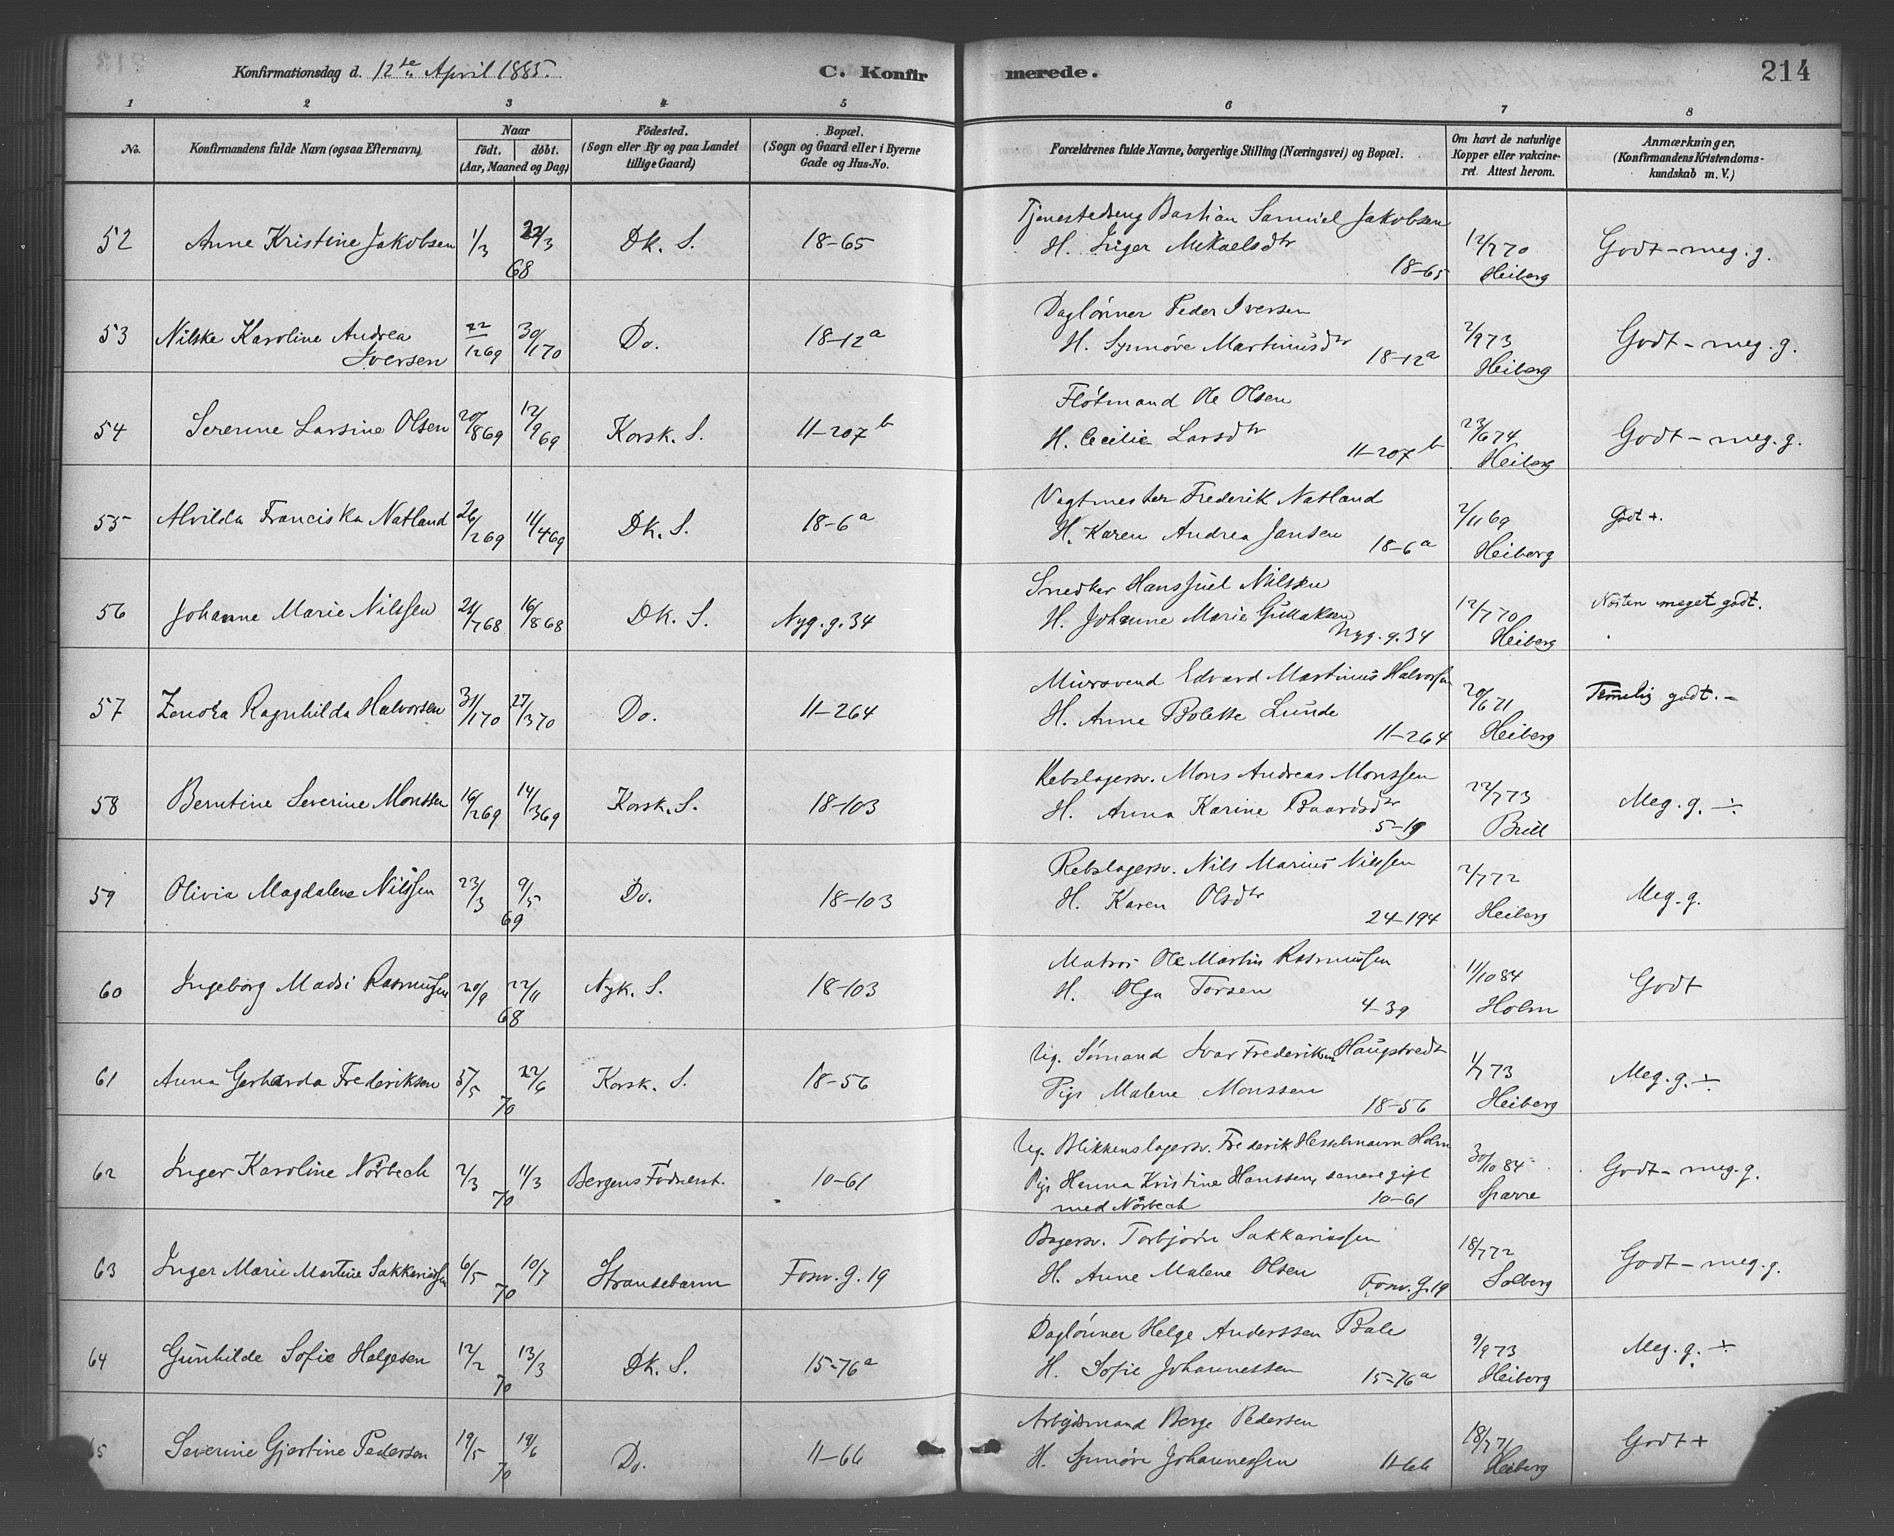 Konfirmationsdag d. 12te April 1885. C. Konfirmerede. 214
1 2 3 4 5 6 7 8
No. Konfirmandens fulde Navn (ogsaa Efternavn) Naar født. døbt. (Aar, Maaned og Dag) Fødested. (Sogn eller By og paa Landet tillige Gaard) Bopæl. (Sogn og Gaard eller i Byerne Gade og Hus-No. Forældrenes fulde Navne, borgerlige Stilling (Næringsvei) og Bopæl. Om havt de naturlige Kopper eller vakcineret. Attest herom. Anmærkninger, (Konfirmandens Kristendomskundskab m. V.)
52 Anne Kristine Jakobsen 1/3 22/3 68 Dk. S. 18-65 Tjenestedreng Bastian Samuel Jakobsen
H. Inger Mikaelsdtr 18-65 12/7 70 Heiberg Godt - meg. g.
53 Nilske Karoline Andrea Iversen 22/12 69 30/1 70 Do. 18-12a Daglønner Peder Iversen
H. Synnøve Martinusdtr 18-12a 2/9 73 Heiberg Godt - meg. g.
54 Sererine Larsine Olsen 20/8 69 12/9 69 Korsk. S. 11-207b Fløtmand Ole Olsen
H. Cecilie Larsdtr 11-207b 23/6 74 Heiberg Godt - meg. g.
55 Alvilda Franciska Natland 26/2 69 11/4 69 Dk. S. 18-6a Vagtmester Frederik Natland
H. Karen Andrea Jansen 18-6a 2/11 69 Heiberg Godt +.
56 Johanne Marie Nilssen 21/7 68 16/8 68 Dk. S. Nyg. g. 34 Snedker Hans Juel Nilsen
H. Johanne Marie Gullaksen Nyg. g. 34 12/7 70 Heiberg Næsten meget godt.
57 Ragnhilda Halvorsen 31/1 70 27/3 70 Do. 11-264 Mursvend Edvard Martinus Halvorsen
H. Anne Bolette Lunde 11-264 20/6 71 Heiberg Temmelig godt. -
58 Berntine Severine Monssen 16/2 69 14/3 69 Korsk. S. 18-103 Rebslagersv. Mons Andreas Monssen
H. Anna Karine Baardsdtr 5-19 22/7 73 Meg. g. ÷.
59 Olivia Magdalene Nilssen 23/3 9/5 69 Do. 18-103 Rebslagersv. Nils Marius Nilssen
H. Karen Olsdtr 24-194 2/7 72 Heiberg Meg. g.
60 Ingeborg Madsi Rasmussen 20/9 22/11 68 Nyk. S. 18-103 Matros Ole Martin Rasmussen
H. Olga Torsen 4-39 11/10 84 Holm Godt
61 Anna Gerharda Frederiksen 5/5 22/6 70 Korsk. S. 18-56 Ug. Sømand Ivar Frederiksen Haugstvedt
Pige Malene Monssen 18-56 1/7 73 Heiberg Meg. g. ÷
62 Inger Karoline Norbech 2/3 11/3 70 Bergens Fødselsst. 10-61 Ug. Blikkenslagersv. Frederik Hesselmann Holm
Pige Hanna Kristine Hanssen, senere gift
med Norbech 10-61 30/10 84 Sparre Godt - meg. g.
63 Inger Marie Martine Sakkariassen 6/5 10/7 70 Strandebarm Fosv. g. 19 Bagersv. Torbjørn Sakkariassen
H. Anne Malene Olsen Fosv. g. 19 18/7 72 Solberg Godt - meg. g.
64 Gunhilde Sofie Helgesen 12/2 13/3 70 Dk. S. 15-76a Daglønner Helge Anderssen Bale
H. Sofie Johannessen 15-76a 9/9 73 Heiberg Meg. g. ÷
65 Severine Gjertine Pedersen 19/5 19/6 70 Do. 11-66 Arbeidsmand Berge Pedersen
H. Synnøve Johannessen 11-66 18/7 71 Heiberg Godt +